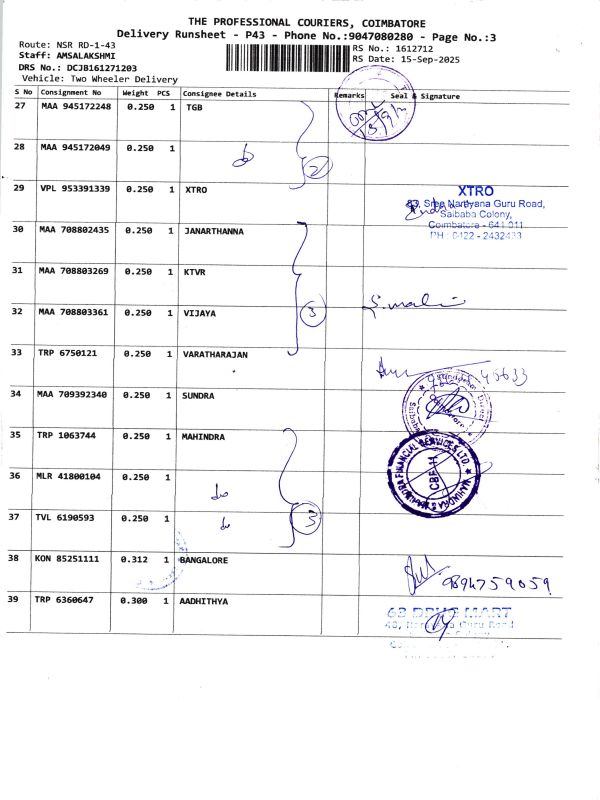 THE PROFESSIONAL COURIERS, COIMBATORE
Delivery Runsheet - P43 - Phone No.:9047080280 - Page No.:3
Route: NSR RD-1-43
RS No.: 1612712
Staff: AMSALAKSHMI
RS Date: 15-Sep-2025
DRS No.: DCJB161271203
Vehicle: Two Wheeler Delivery
S No Consignment No Weight PCS Consignee Details Remarks Seal & Signature
27 MAA 945172248 0.250 1 TGB
28 MAA 945172049 0.250 1 do
2
29 VPL 953391339 0.250 1 XTRO
XTRO
83, Sree Narayana Guru Road,
Saibaba Colony,
Coimbatore - 641 011
PH : 0422 - 2432433
30 MAA 708802435 0.250 1 JANARTHANNA
31 MAA 708803269 0.250 1 KTVR
32 MAA 708803361 0.250 1 VIJAYA
3
33 TRP 6750121 0.250 1 VARATHARAJAN
34 MAA 709392340 0.250 1 SUNDRA
35 TRP 1063744 0.250 1 MAHINDRA
MAHINDRA & MAHINDRA FINANCIAL SERVICES LTD.
CBE-11
36 MLR 41800104 0.250 1 do
37 TVL 6190593 0.250 1 do
3
38 KON 85251111 0.312 1 BANGALORE
9894759059
39 TRP 6360647 0.300 1 AADHITHYA
63 DRUG MART